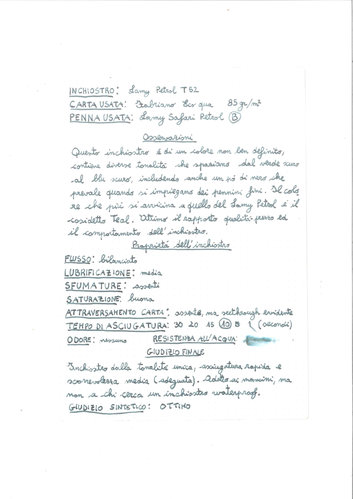 INCHIOSTRO: Lamy Petrol T52
CARTA USATA: Fabriano Ecoqua 85 gr/m²
PENNA USATA: Lamy Safari Petrol (B)
Osservazioni
Questo inchiostro è di un colore non ben definito,
contiene diverse tonalità che spaziano dal verde scuro
al blu scuro, includendo anche un pò di nero che
prevale quando si impiegano dei pennini fini. Il colo-
re che più si avvicina a quello del Lamy Petrol è il
cosidetto Teal. Ottimo il rapporto qualità-prezzo ed
il comportamento dell'inchiostro.
Proprietà dell'inchiostro
FLUSSO: bilanciato
LUBRIFICAZIONE: media
SFUMATURE: assenti
SATURAZIONE: buona
ATTRAVERSAMENTO CARTA: assente, ma seethrough evidente
TEMPO DI ASCIUGATURA: 30 20 15 (10) 5 (secondi)
ODORE: nessuno RESISTENZA ALL'ACQUA:
GIUDIZIO FINALE
Inchiostro dalla tonalità unica, asciugatura rapida e
scorrevolezza media (adeguata). Adatto ai mancini, ma
non a chi cerca un inchiostro waterproof.
GIUDIZIO SINTETICO: OTTIMO